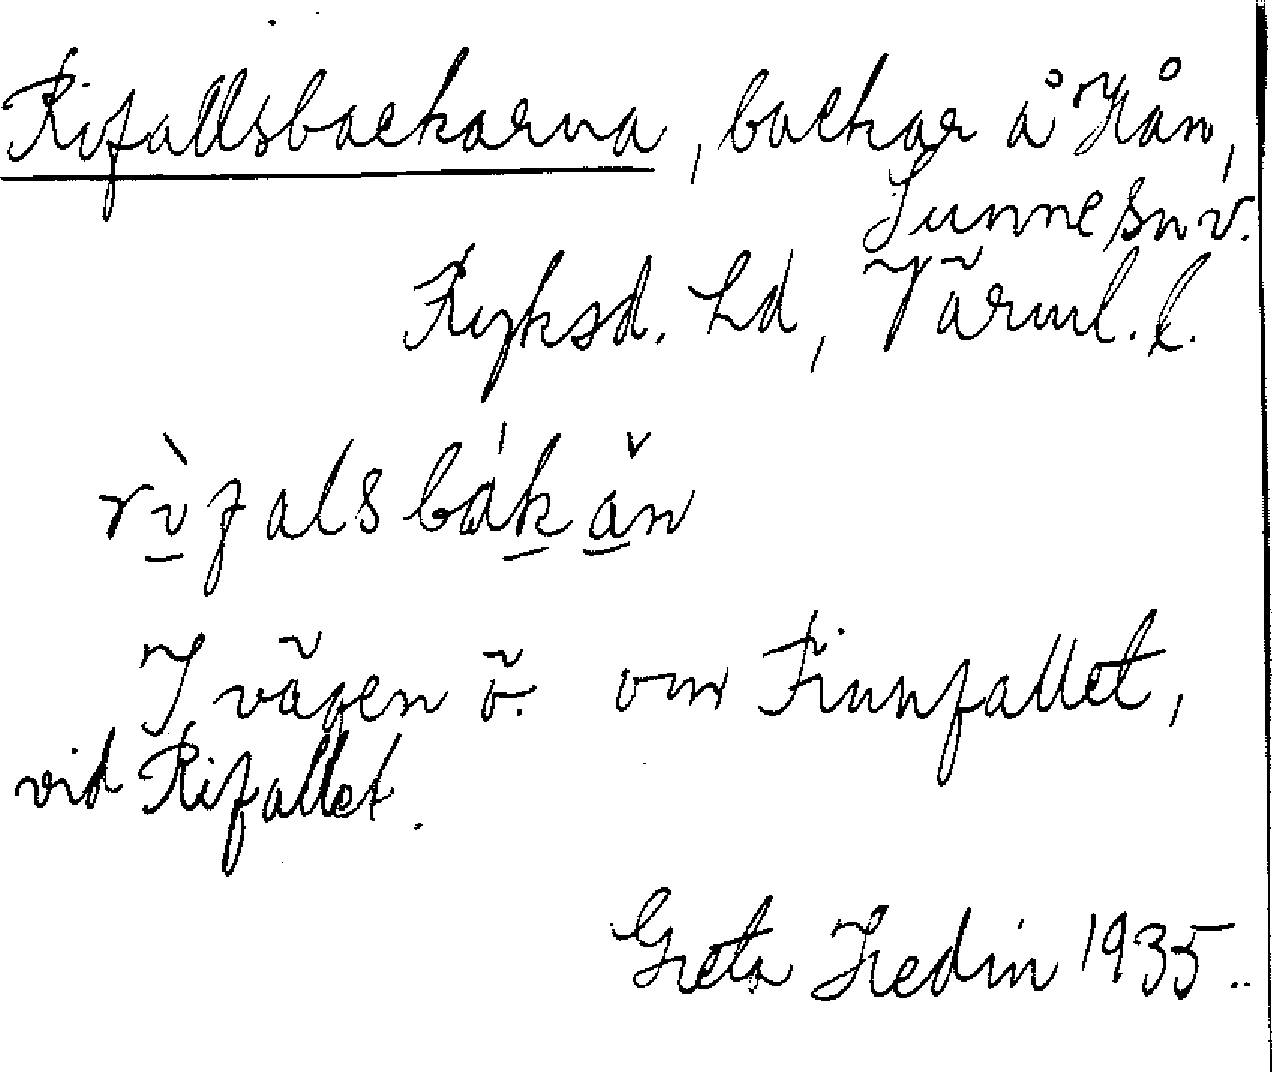 Rifallsbackarna, backar å Hån,
Sunne sn v.
Fryksd. hd, Värml. l.
rìfalsbákăn
I vägen ö. om Finnfallet,
vid Rifallet.
Greta Hedin 1935.